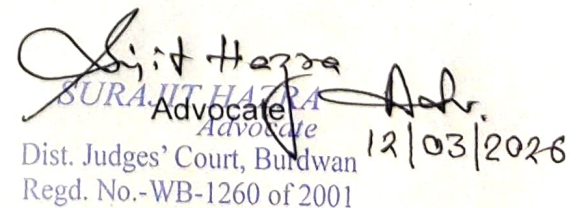 Surjit Hazra
SURAJIT HAZRA
Advocate
Advocate Adv.
12/03/2026
Dist. Judges' Court, Burdwan
Regd. No.-WB-1260 of 2001